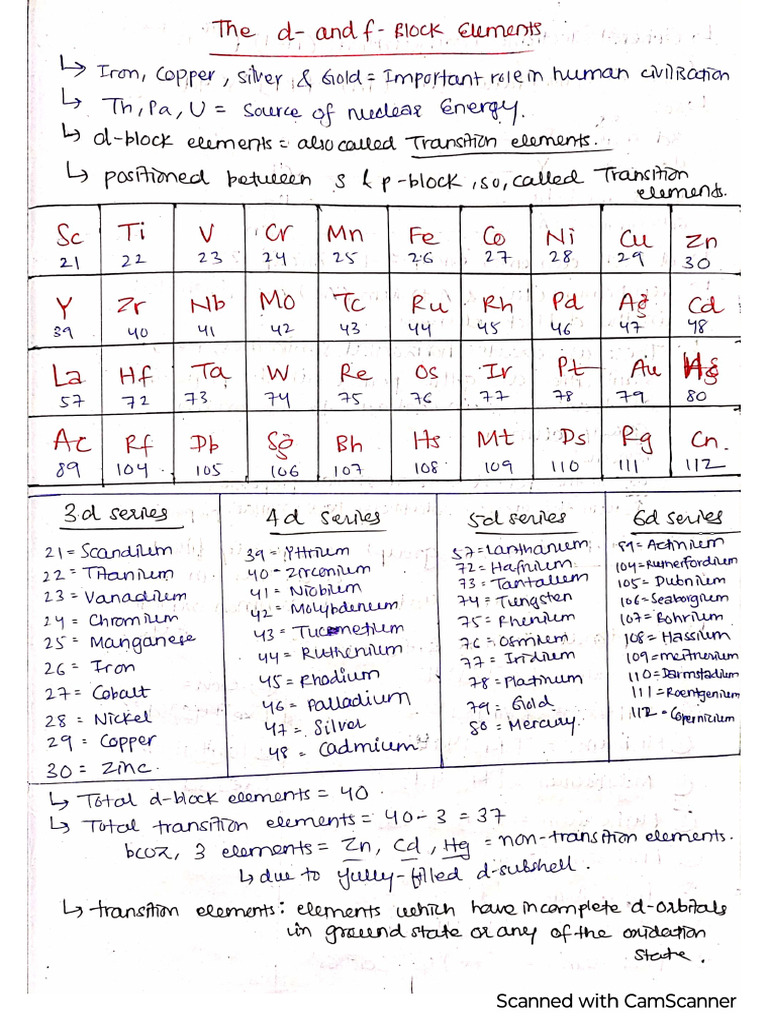 The d- and f- Block Elements
↳ Iron, Copper, silver & Gold = Important role in human civilisation
↳ Th, Pa, U = Source of nuclear Energy.
↳ d-block elements = also called Transition elements.
↳ positioned between s & p-block, so, called Transition
elements.
Sc Ti V Cr Mn Fe Co Ni Cu Zn
21 22 23 24 25 26 27 28 29 30
Y Zr Nb Mo Tc Ru Rh Pd Ag Cd
39 40 41 42 43 44 45 46 47 48
La Hf Ta W Re Os Ir Pt Au Hg
57 72 73 74 75 76 77 78 79 80
Ac Rf Db Sg Bh Hs Mt Ds Rg Cn.
89 104 105 106 107 108 109 110 111 112
3d series
21 = Scandium
22 = Titanium
23 = Vanadium
24 = Chromium
25 = Manganese
26 = Iron
27 = Cobalt
28 = Nickel
29 = Copper
30 = Zinc.
4d series
39 = Yttrium
40 - Zirconium
41 = Niobium
42 = Molybdenum
43 = Tucometium
44 = Ruthenium
45 = Rhodium
46 = Palladium
47 = Silver
48 = Cadmium
5d series
57 = Lanthanum
72 = Hafnium
73 = Tantalum
74 = Tungsten
75 = Rhenium
76 = Osmium
77 = Iridium
78 = Platinum
79 = Gold
80 = Mercury.
6d series
89 = Actinium
104 = Rutherfordium
105 = Dubnium
106 = Seaborgium
107 = Bohrium
108 = Hassium
109 = meitnerium
110 = Darmstadium
111 = Roentgenium
112 = Copernicium
↳ Total d-block elements = 40.
↳ Total transition elements = 40 - 3 = 37
bcoz, 3 elements = Zn, Cd, Hg = non-transition elements.
↳ due to fully-filled d-subshell.
↳ transition elements: elements which have incomplete d-orbitals
in ground state or any of the oxidation
state.
Scanned with CamScanner